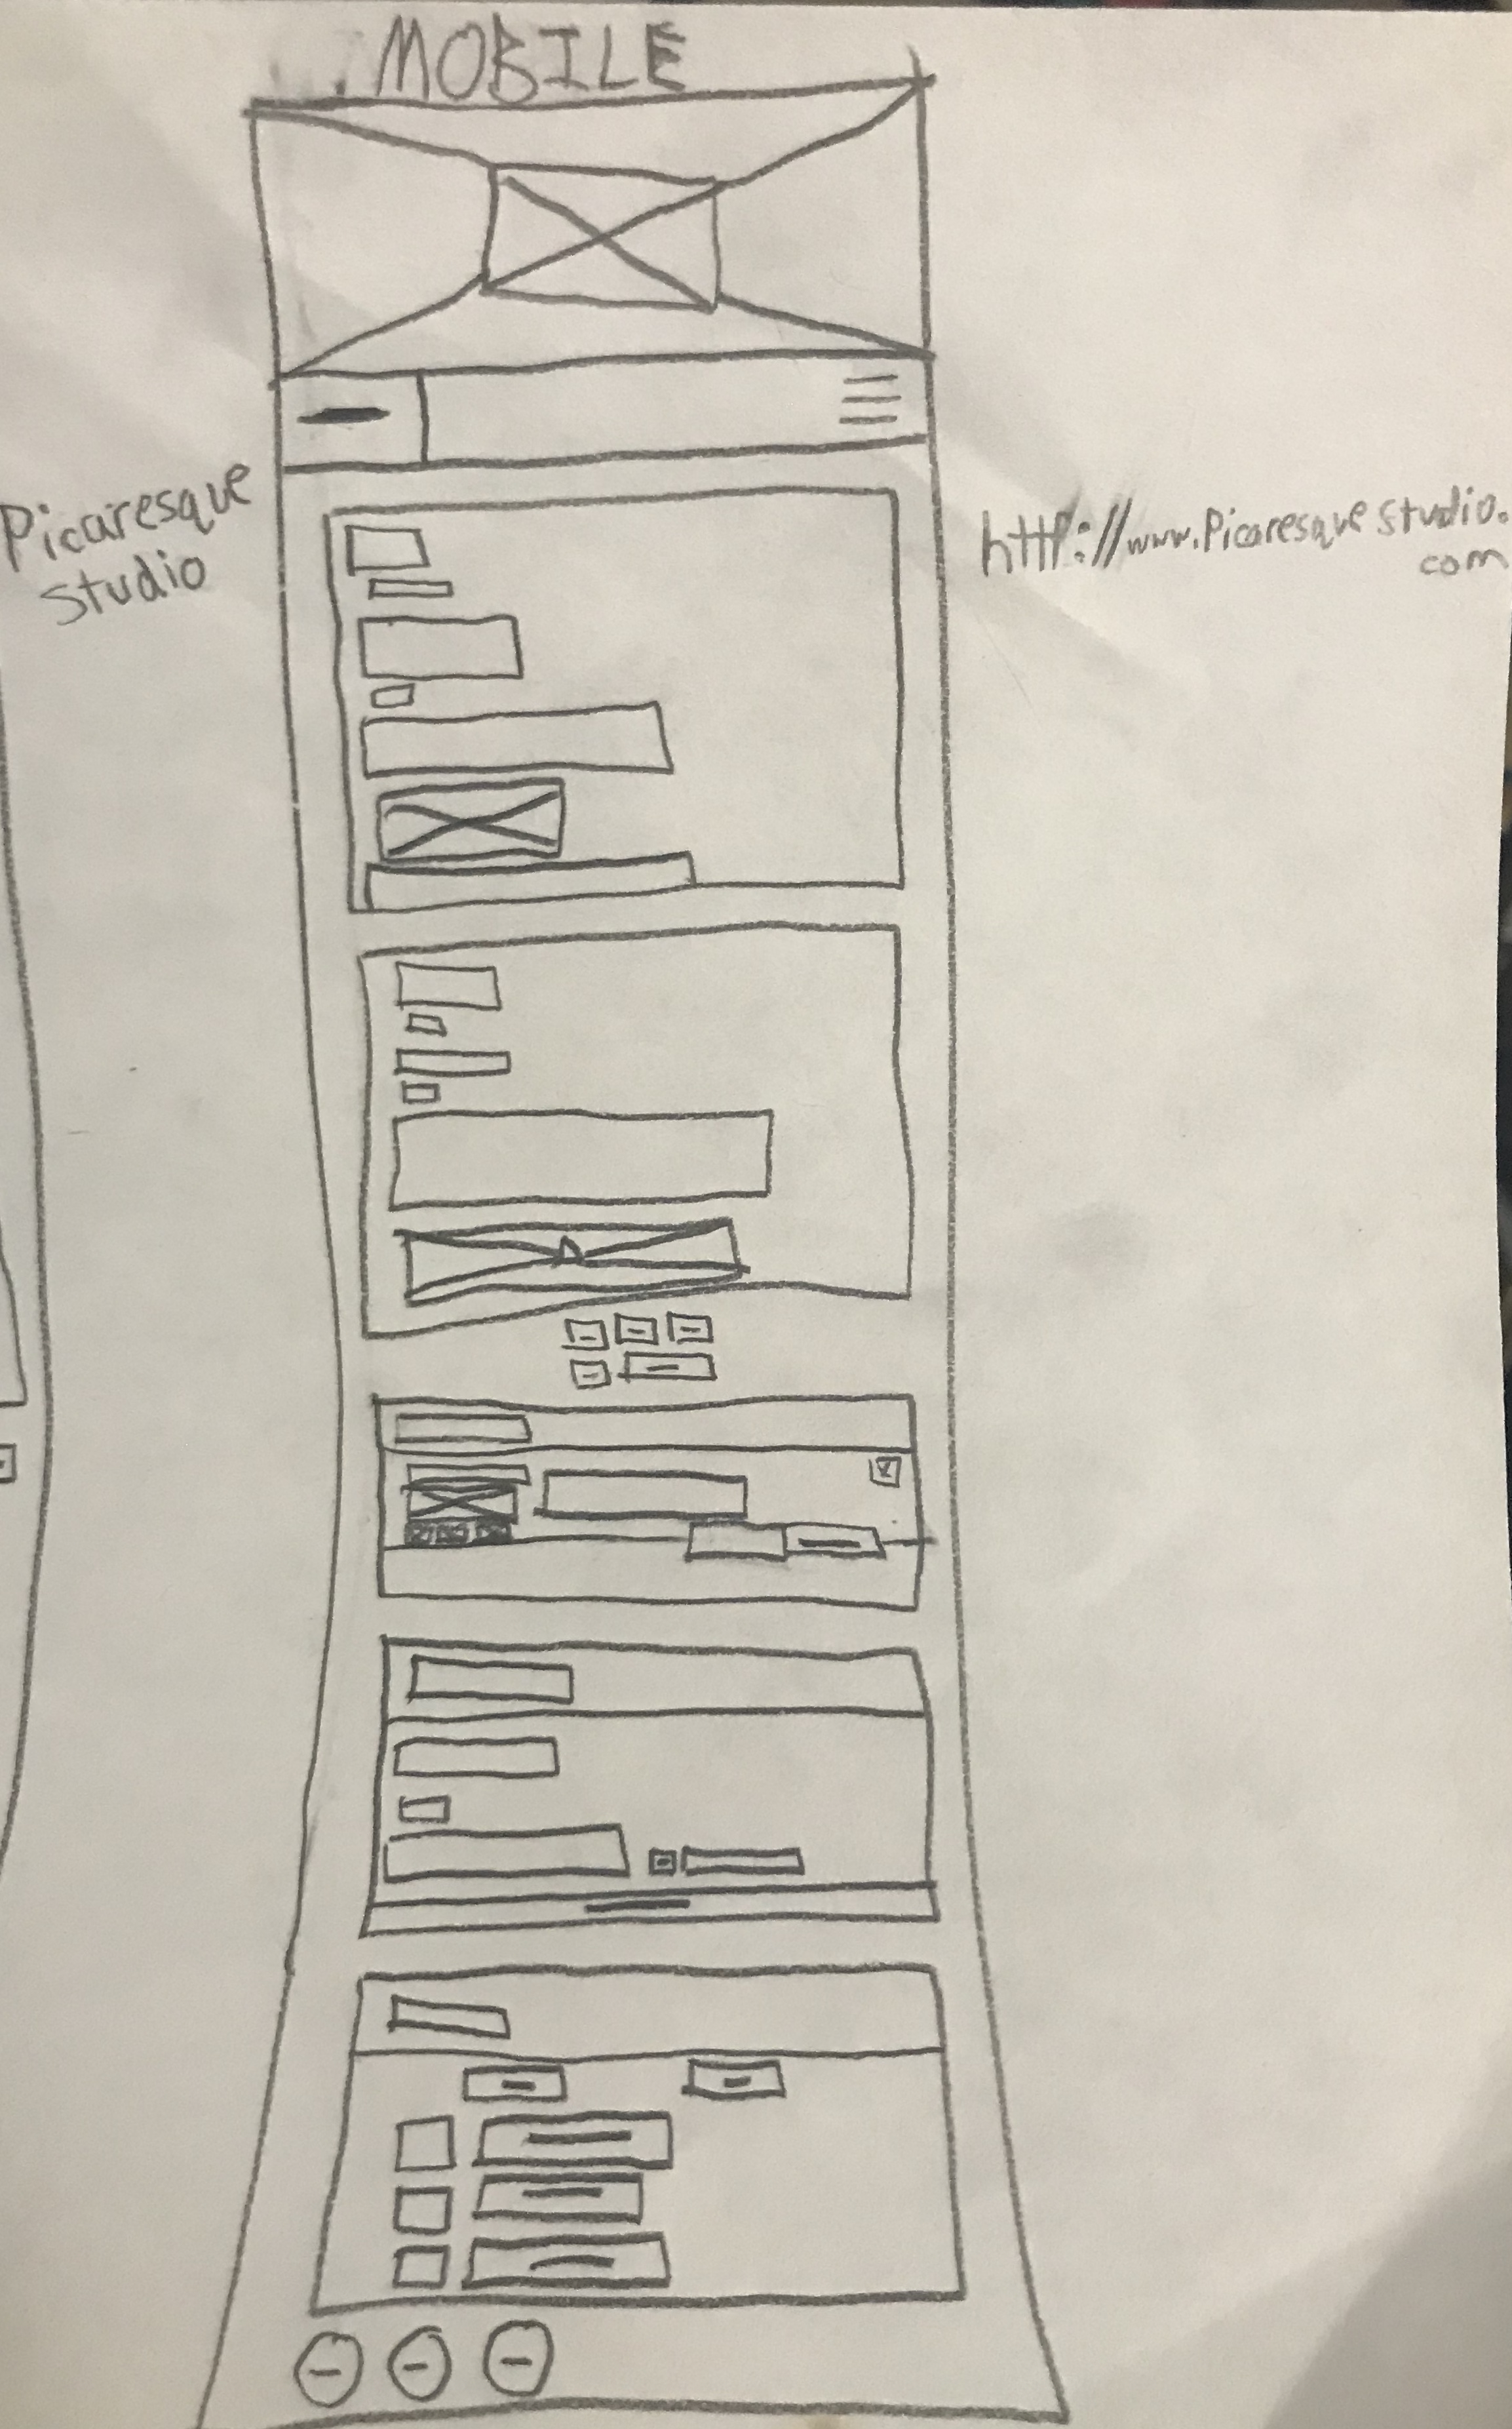 MOBILE
Picaresque
studio
http://www.Picaresquestudio.
com